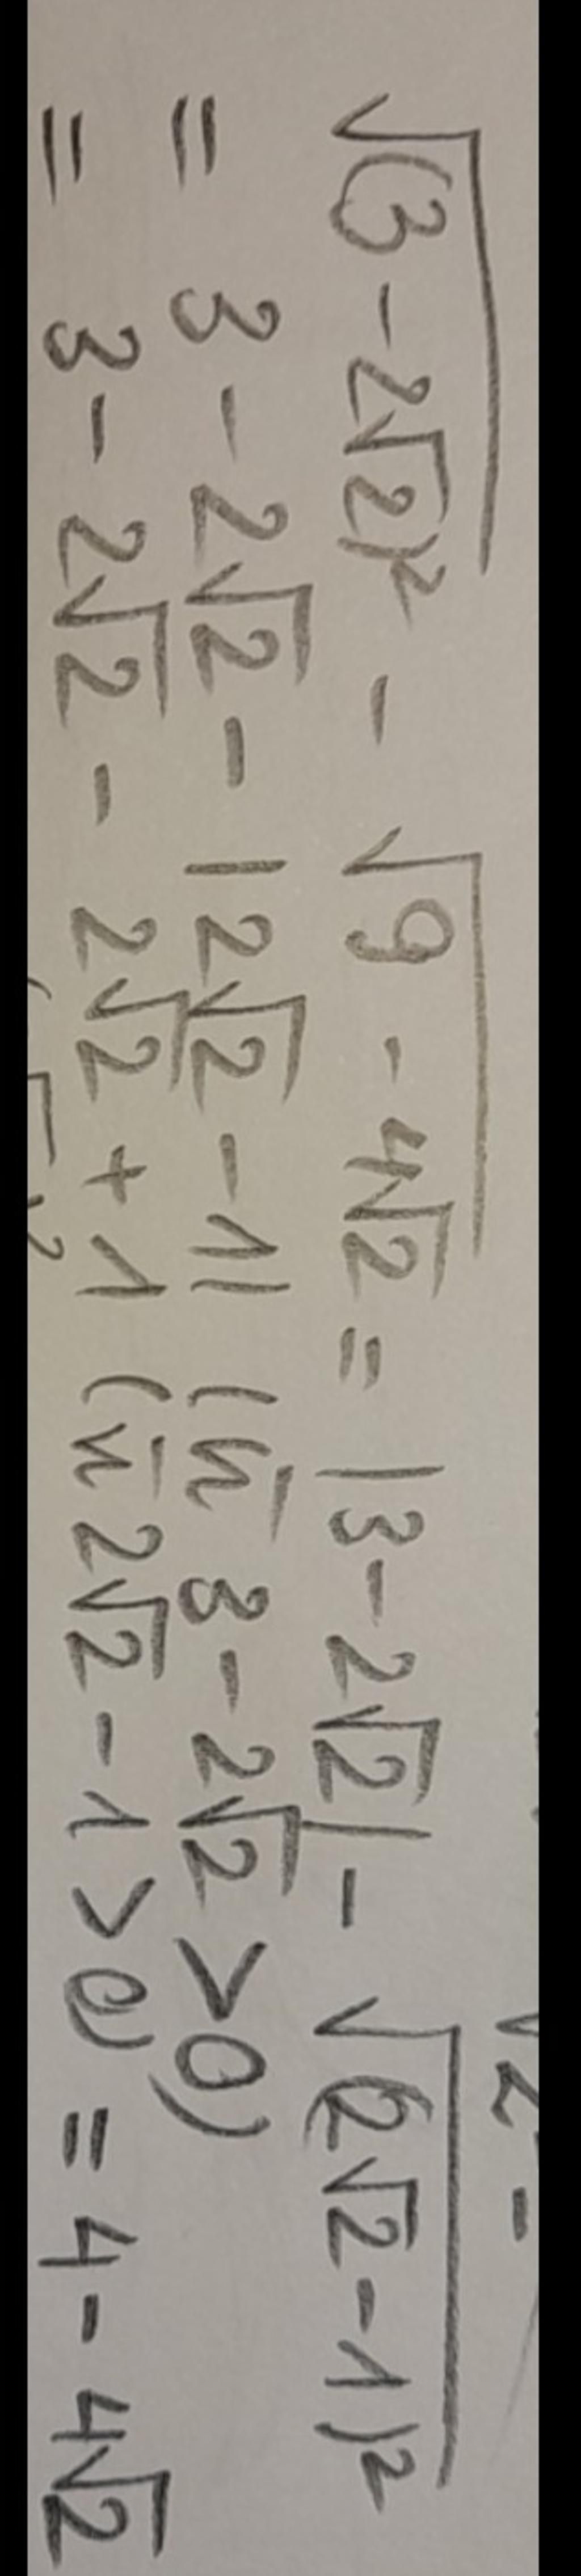 √(3 - 2√2)² - √9 - 4√2 = |3 - 2√2| - √(2√2 - 1)²
= 3 - 2√2 - |2√2 - 1| (vì 3 - 2√2 > 0)
= 3 - 2√2 - 2√2 + 1 (vì 2√2 - 1 > 0) = 4 - 4√2